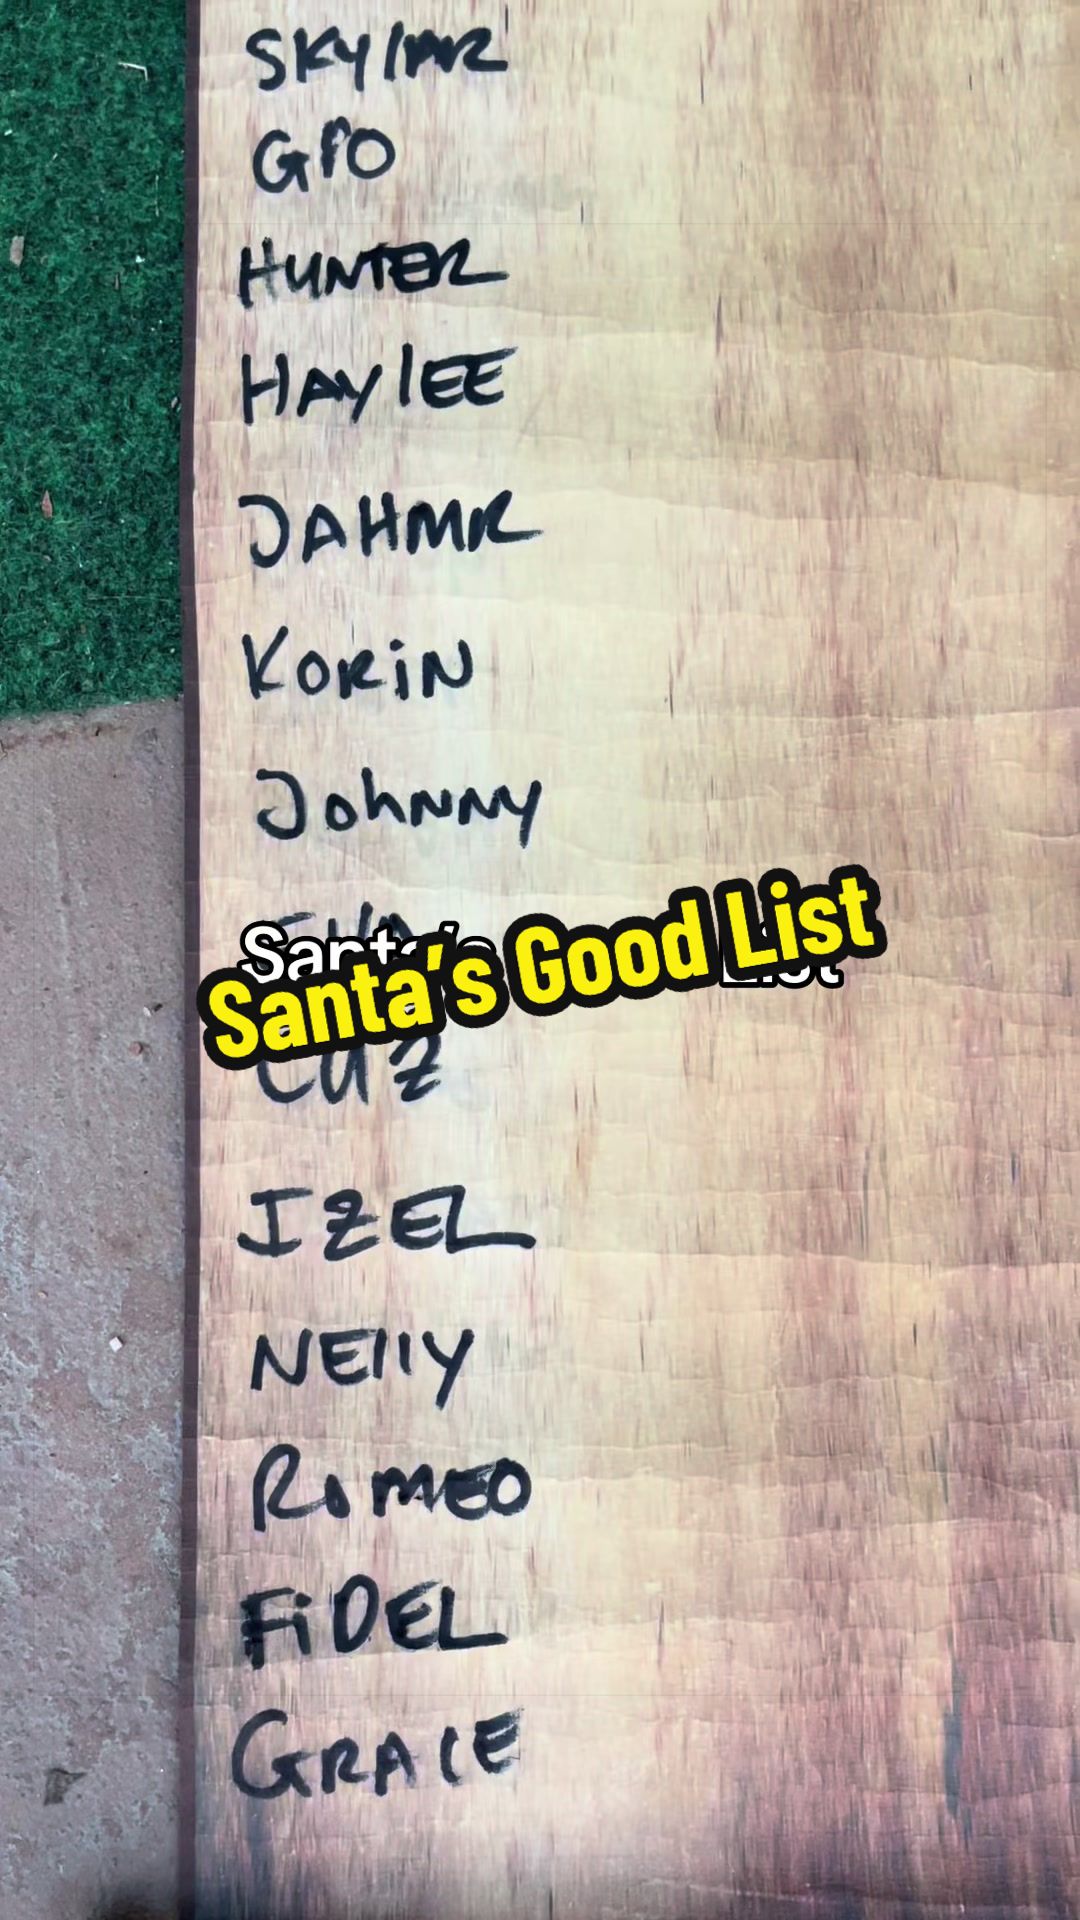 SKYlAR
GPO
HUNTER
HAYlEE
JAHMR
KORiN
JohNNY
Santa's Good List
LUZ
IZEL
NEllY
ROMEO
FiDEL
GRACE